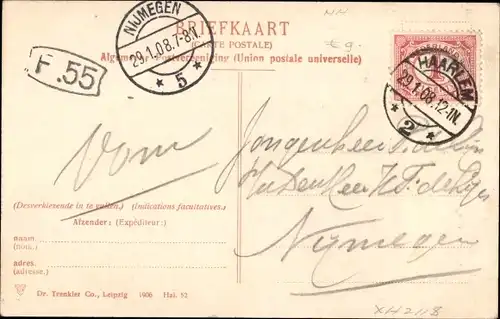 NIJMEGEN
29.1.08.7-8V.
* 5 *
BRIEFKAART
(CARTE POSTALE)
Algemeene Postvereeniging (Union postale universelle)
HAARLEM
29.1.08.12-1N.
* 2 *
F.55
Jongenheer
den Heer
Nijmegen
(Desverkiezende in te vullen.) (Indications facultatives.)
Afzender: (Expéditeur:)
naam.
(nom.)
adres.
(adresse.)
Dr. Trenkler Co., Leipzig 1906 Hal. 52
XH2118